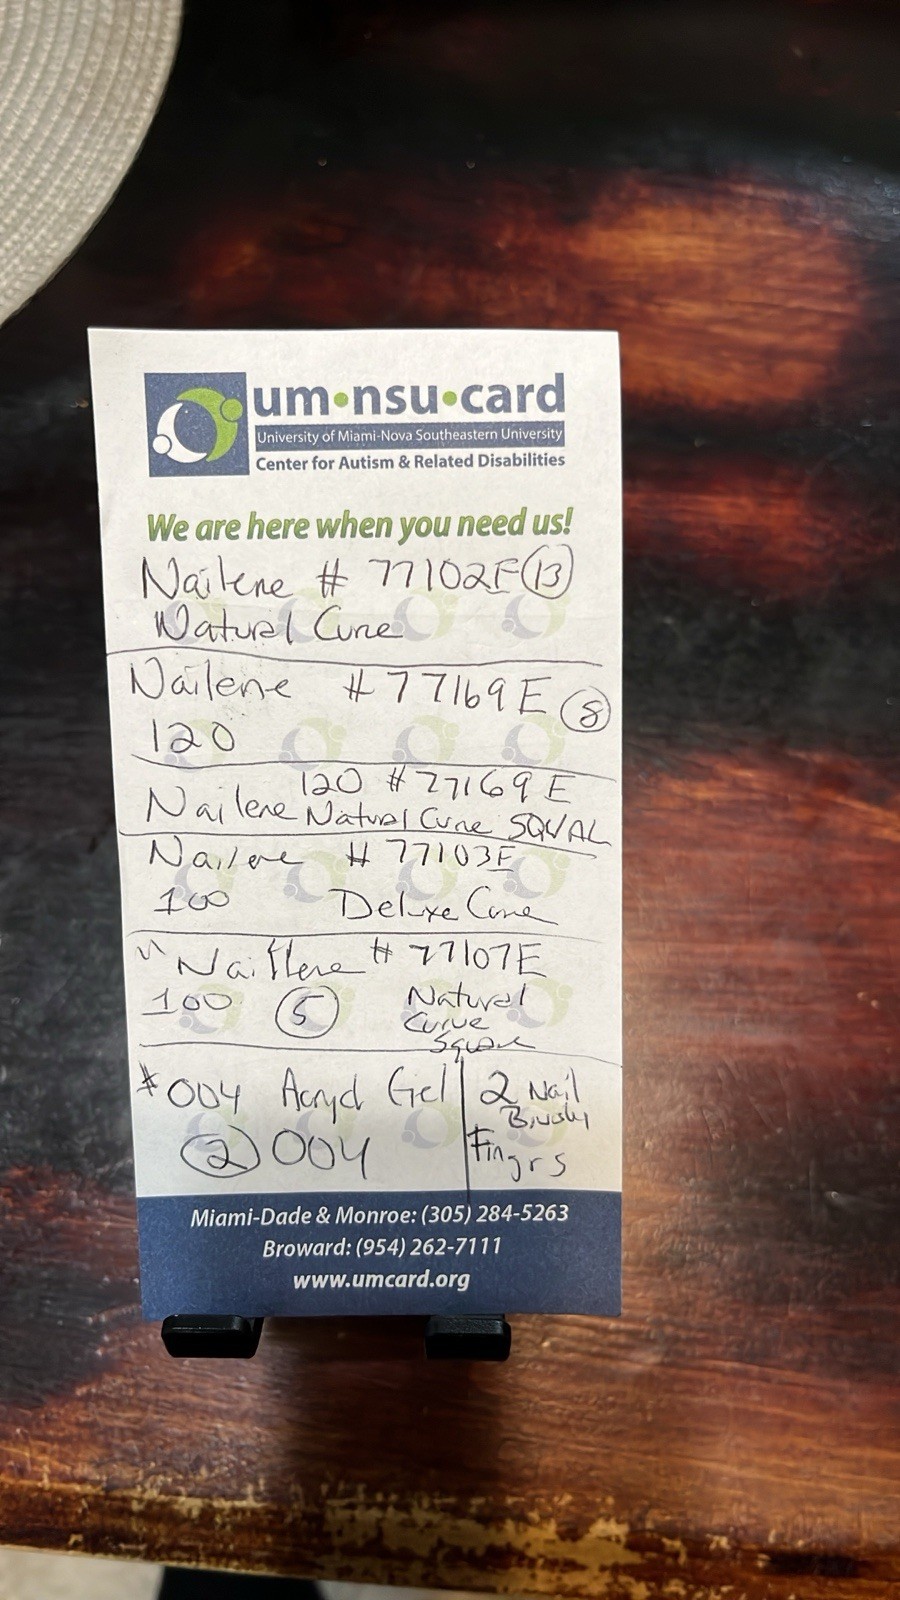 um•nsu•card
University of Miami-Nova Southeastern University
Center for Autism & Related Disabilities
We are here when you need us!
Nailene # 77102E 13
Natural Curve
Nailene # 77169E 8
120
120 # 77169E
Nailene Natural Curve SQUAL
Nailene # 77103E
100 Deluxe Curve
" Nailene # 77107E
100 5 Natural
Curve
Square
#004 Acryd Gel
2 004
2 Nail
Brush
Fingrs
Miami-Dade & Monroe: (305) 284-5263
Broward: (954) 262-7111
www.umcard.org